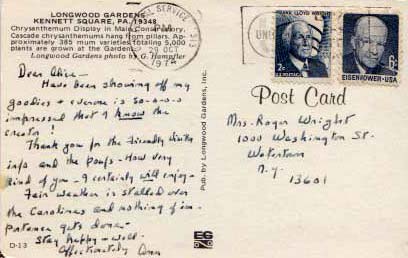 LONGWOOD GARDENS
KENNETT SQUARE, PA. 19348
Chrysanthemum Display in Main Conservatory.
Cascade chrysanthemums hang from pillars. Ap-
proximately 385 mum varieties totaling 5,000
plants are grown at the Gardens.
Longwood Gardens photo by G. Hampfler
Dear Alice -
Have been showing off my
goodies + everone is so-o-o-o
impressed that I know the
creator!
Thank you for the Friendly
info and the poufs - How very
kind of you - I certainly will enjoy -
Fair Weather is stalled over
the Carolinas and nothing of im-
portance gets done -
Stay happy - well -
Affectionately Ann
D-13
Pub. by Longwood Gardens, Inc.
SERVICE
29 OCT
197
FRANK LLOYD WRIGHT
2¢
U.S. POSTAGE
6¢
EISENHOWER · USA
Post Card
Mrs. Roger Wright
1000 Washington St.
Watertown
N.Y.
13601